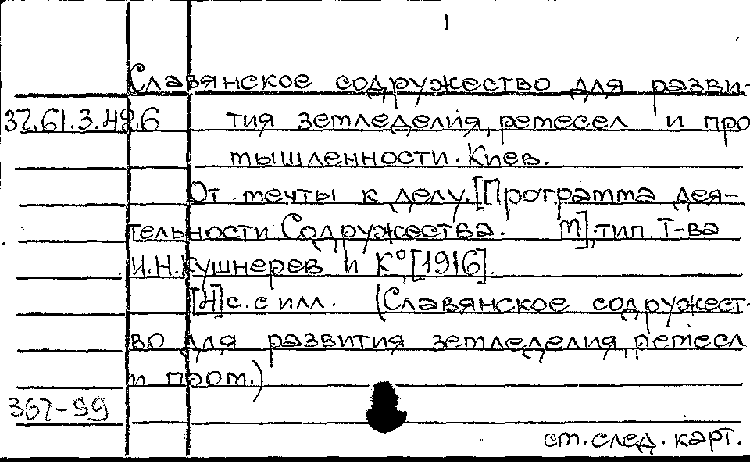 1
Славянское содружество для разви-
37.61.3.49.6 тия земледелия, ремесел и про
мышленности. Киев.
От мечты к делу. [Программа дея-
тельности Содружества. М], тип. Т-ва
И.Н.Кушнерев и К°, [1916].
[4]с.с илл. (Славянское содружест-
во для развития земледелия, ремесл
и пром.)
367-99
см. след. карт.